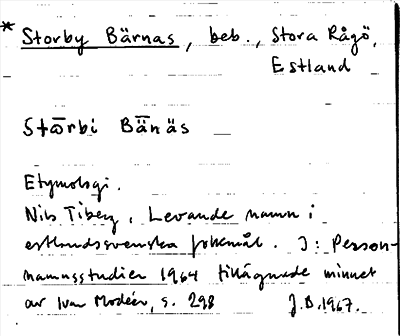 * Storby Bärnas, beb., Stora Rågö,
Estland
Stōrbi Bānäs
Etymologi.
Nils Tiberg, Levande namn i
estlandssvenska folkmål. I: Person-
namnsstudier 1964 tillägnade minnet
av Ivar Modéer, s. 298 J.D. 1967.